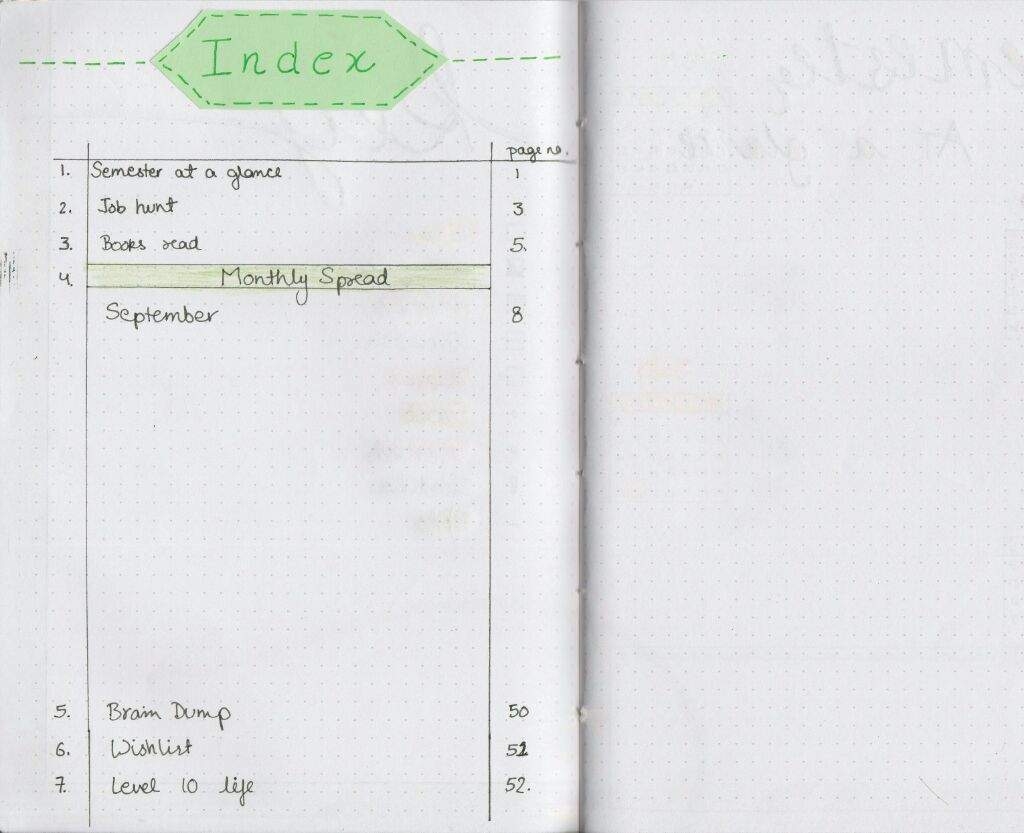 Index
page no.
1. Semester at a glance 1
2. Job hunt 3
3. Books read 5.
4. Monthly Spread
September 8
5. Brain Dump 50
6. Wishlist 51
7. Level 10 life 52.